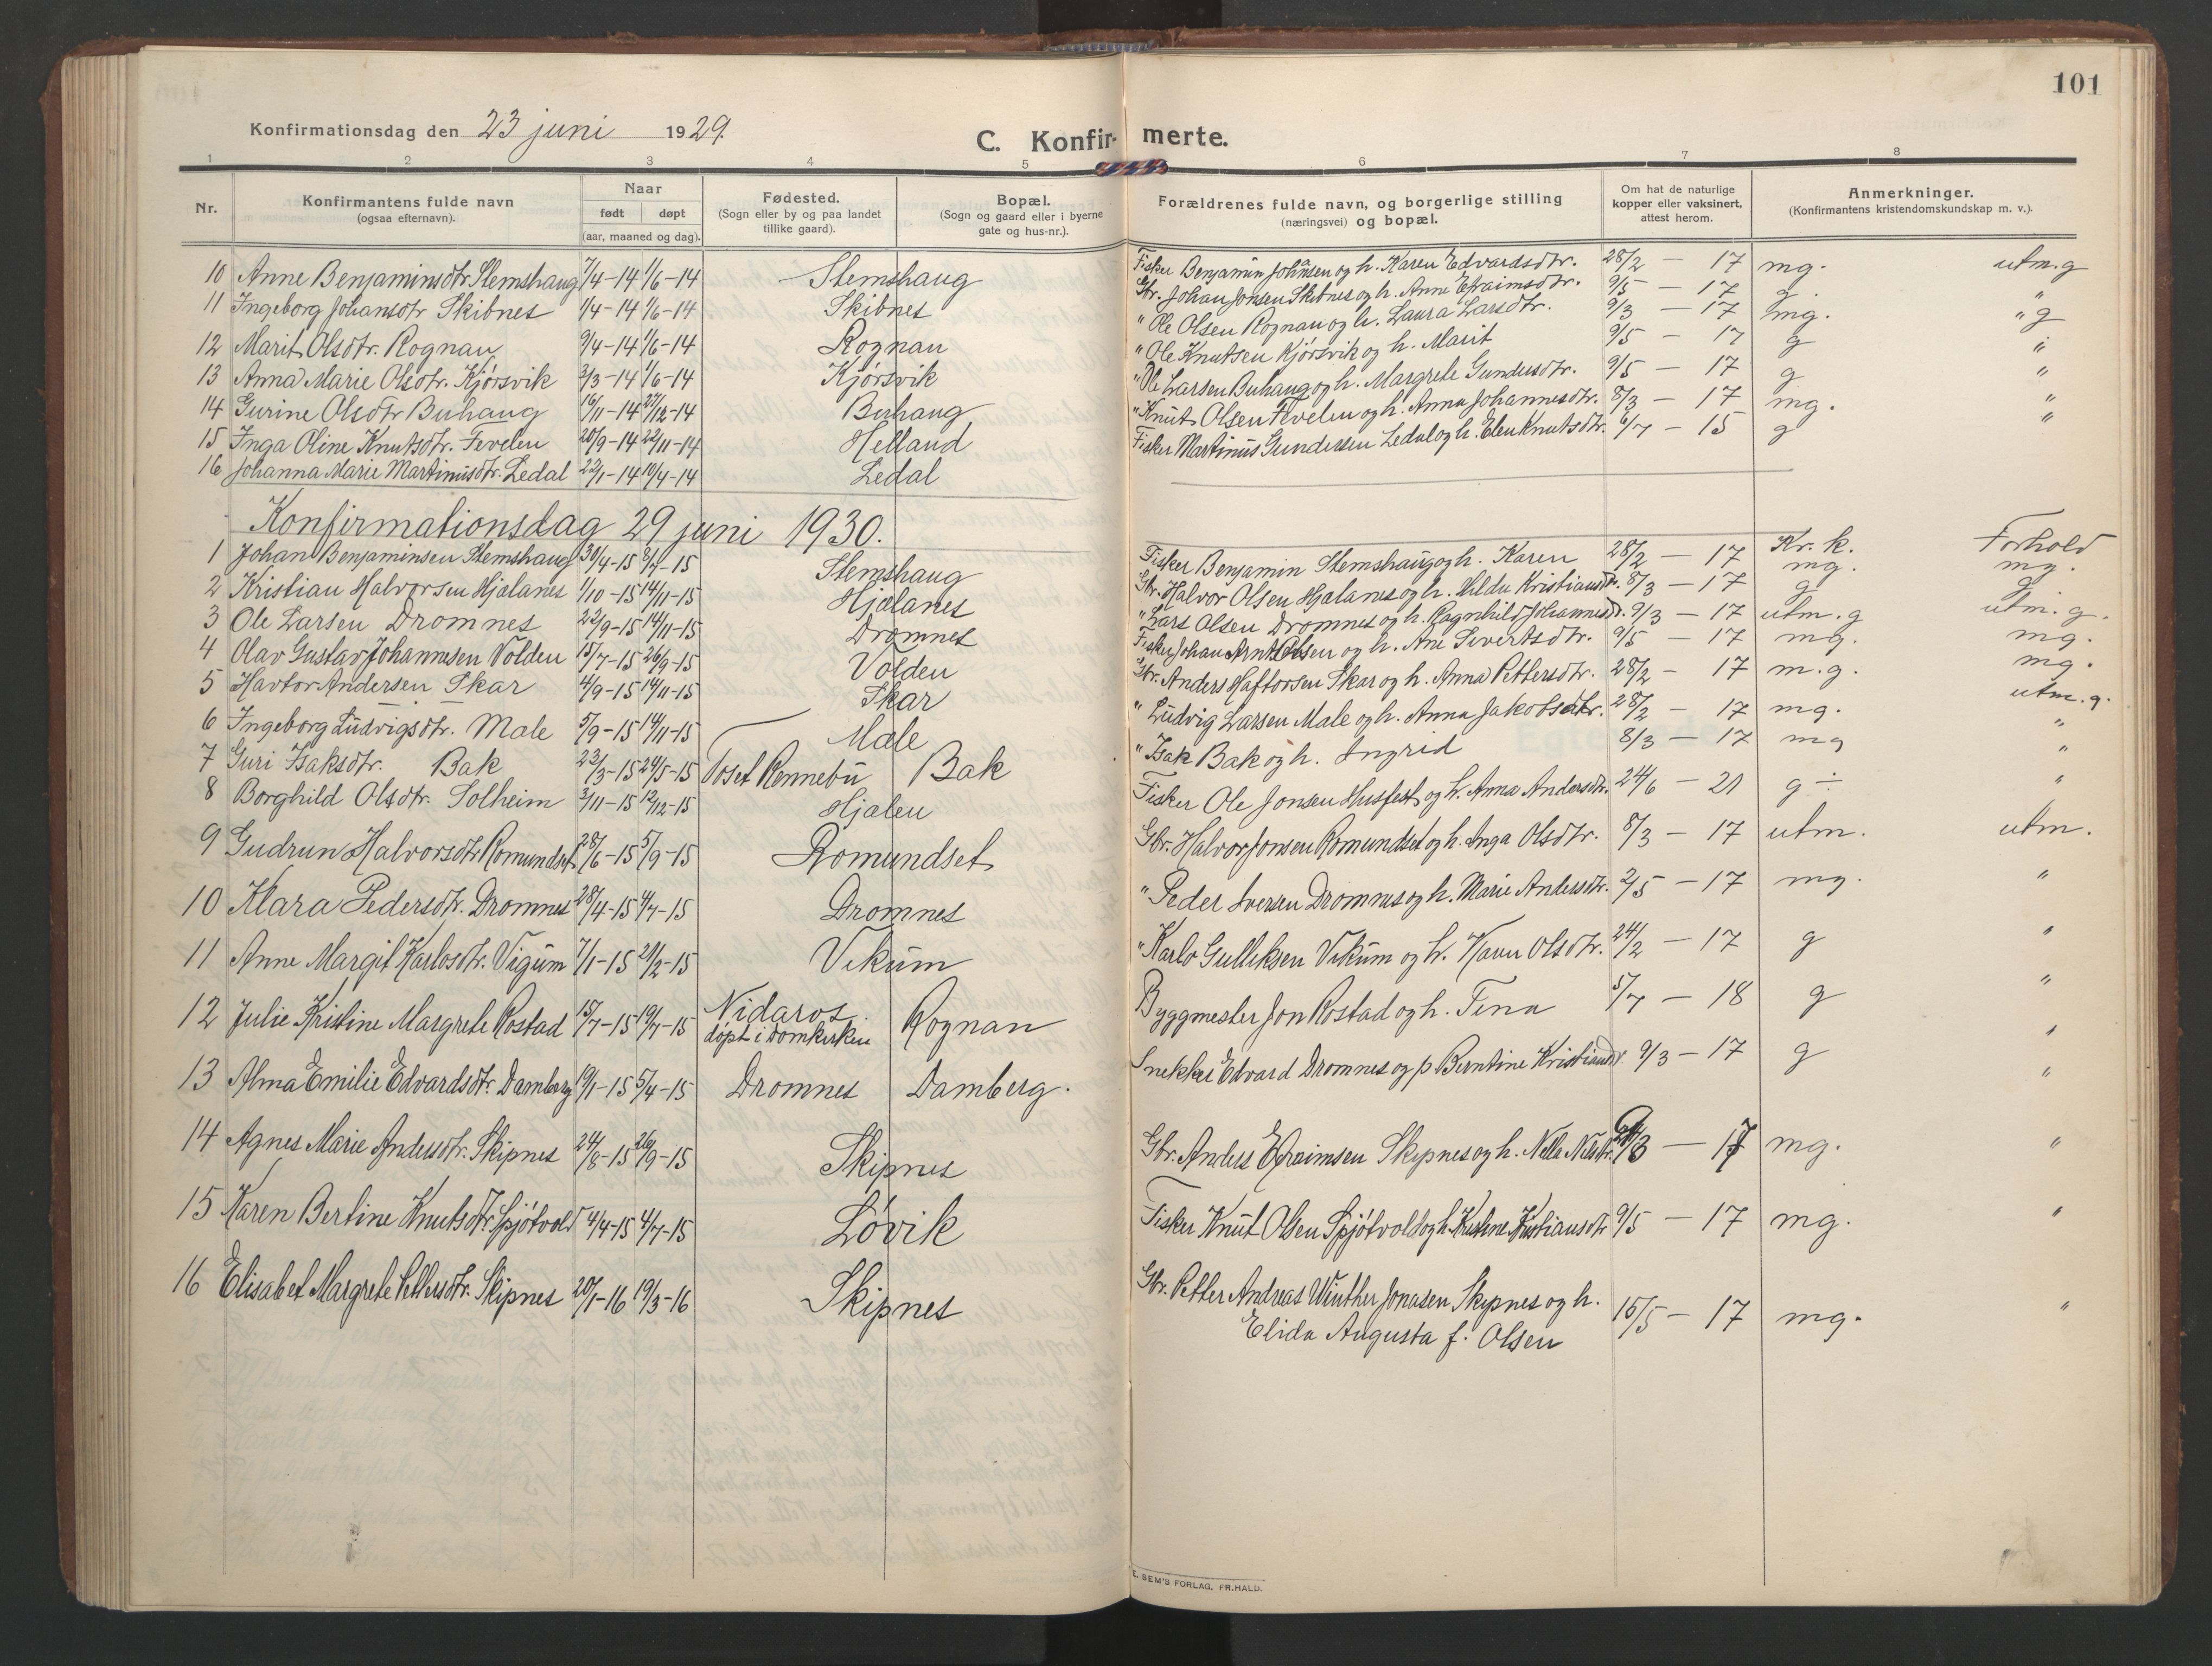 101
Konfirmationsdag den 23 juni 1929.
C. Konfir- merte.
1 2 3 4 5 6 7 8
Nr.
Konfirmantens fulde navn
(ogsaa efternavn).
Naar
født døpt
(aar, maaned og dag).
Fødested.
(Sogn eller by og paa landet
tillike gaard).
Bopæl.
(Sogn og gaard eller i byerne
gate og hus-nr.).
Forældrenes fulde navn, og borgerlige stilling
(næringsvei) og bopæl.
Om hat de naturlige
kopper eller vaksinert,
attest herom.
Anmerkninger.
(Konfirmantens kristendomskundskap m. v.).
10 Anne Benjaminsdtr. Stemshaug 7/4-14 1/6-14 Stemshaug Fisker Benjamin Johansen og h. Karen Edvardsdtr. 28/2 — 17 mg. utm. g
11 Ingeborg Johansdtr Skibnes 1/4-14 1/6-14 Skibnes Gbr. Johan Jonsen Skibnes og h. Anne Efraimsdtr. 9/5 — 17 g "
12 Marit Olsdtr. Rognan 9/4-14 1/6-14 Rognan " Ole Olsen Rognan og h. Laura Larsdtr. 9/3 — 17 mg. " g
13 Anna Marie Olsdtr. Kjørsvik 3/3-14 1/6-14 Kjørsvik " Ole Knutsen Kjørsvik og h. Marit 9/5 — 17 g "
14 Gurine Olsdtr Buhaug 16/11-14 27/12-14 Buhaug " Ole Larsen Buhaug og h. Margrete Gundersdtr. 9/5 — 17 g "
15 Inga Oline Knutsdtr. Fevelen 20/9-14 22/11-14 Helland " Knut Olsen Fevelen og h. Anna Johannesdtr. 8/3 — 17 mg. "
16 Johanna Marie Martinusdtr. Ledal 22/1-14 10/4-14 Ledal Fisker Martinus Gundersen Ledal og h. Elen Knutsdtr. 6/7 — 15 g "
Konfirmationsdag 29 juni 1930.
Kr. k. Forhold
1 Johan Benjaminsen Stemshaug 30/4-15 8/7-15 Stemshaug Fisker Benjamin Stemshaug og h. Karen 28/2 — 17 mg. mg.
2 Kristian Halvorsen Hjalanes 1/10-15 14/11-15 Hjalanes Gbr. Halvor Olsen Hjalanes og h. Hilda Kristiansdtr. 8/3 — 17 g g
3 Ole Larsen Dromnes 22/9-15 14/11-15 Dromnes " Lars Olsen Dromnes og h. Ragnhild Johannesdtr. 9/3 — 17 utm. g utm. g.
4 Olav Gustav Johannesen Volden 15/7-15 26/9-15 Volden Fisker Johan Arnt Olsen og h. Ane Sivertsdtr. 9/5 — 17 mg. mg.
5 Havtor Andersen Skar 4/9-15 14/11-15 Skar Gbr. Anders Haftorsen Skar og h. Anna Pettersdtr. 28/2 — 17 m.g. mg.
6 Ingeborg Ludvigsdtr. Male 5/9-15 14/11-15 Male " Ludvig Larsen Male og h. Anna Jakobsdtr. 28/2 — 17 mg. utm. g.
7 Guri Isaksdtr. Bak 23/3-15 24/5-15 Toset Rennebu Bak " Isak Bak og h. Ingrid 8/3 — 17 mg "
8 Borghild Olsdtr. Solheim 3/11-15 12/12-15 Hjalen Fisker Ole Jonsen Husfest og h. Anna Andersdtr. 24/6 — 21 g ÷ "
9 Gudrun Halvorsdtr. Romundset 28/6-15 5/9-15 Romundset Gbr. Halvor Jonsen Romundset og h. Inga Olsdtr. 8/3 — 17 utm. utm.
10 Klara Pedersdtr. Dromnes 28/4-15 4/7-15 Dromnes " Peder Iversen Dromnes og h. Marie Andersdtr. 2/5 — 17 mg. "
11 Anne Margit Karlosdtr. Vigum 7/1-15 21/2-15 Vikum " Karlo Gulliksen Vikum og h. Karen Olsdtr. 24/2 — 17 g "
12 Julie Kristine Margrete Rostad 15/7-15 19/7-15 Nidaros. døpt i Domkirken Rognan Byggmester Jon Rostad og h. Tina 5/7 — 18 g "
13 Alma Emilie Edvardsdtr. Damberg 19/1-15 5/4-15 Dromnes Damberg. Snekker Edvard Dromnes og p Berntine Kristiansd. 9/3 — 17 g "
14 Agnes Marie Andersdtr. Skipnes 24/8-15 26/9-15 Skipnes Gbr. Anders Efraimsen Skipnes og h. Nella Nilsdtr. 9/3 — 17 mg. "
15 Karen Bertine Knutsdtr. Spjøtvold 4/4-15 4/7-15 Løvik Fisker Knut Olsen Spjøtvold og h. Kristine Kristiansdtr 9/5 — 17 mg. "
16 Elisabet Margrete Pettersdtr. Skipnes 20/1-16 19/3-16 Skipnes Gbr. Petter Andreas Winther Jonasen Skipnes og h.
Elida Augusta f. Olsen 15/5 — 17 mg. "
E. SEM'S FORLAG, FR.HALD.